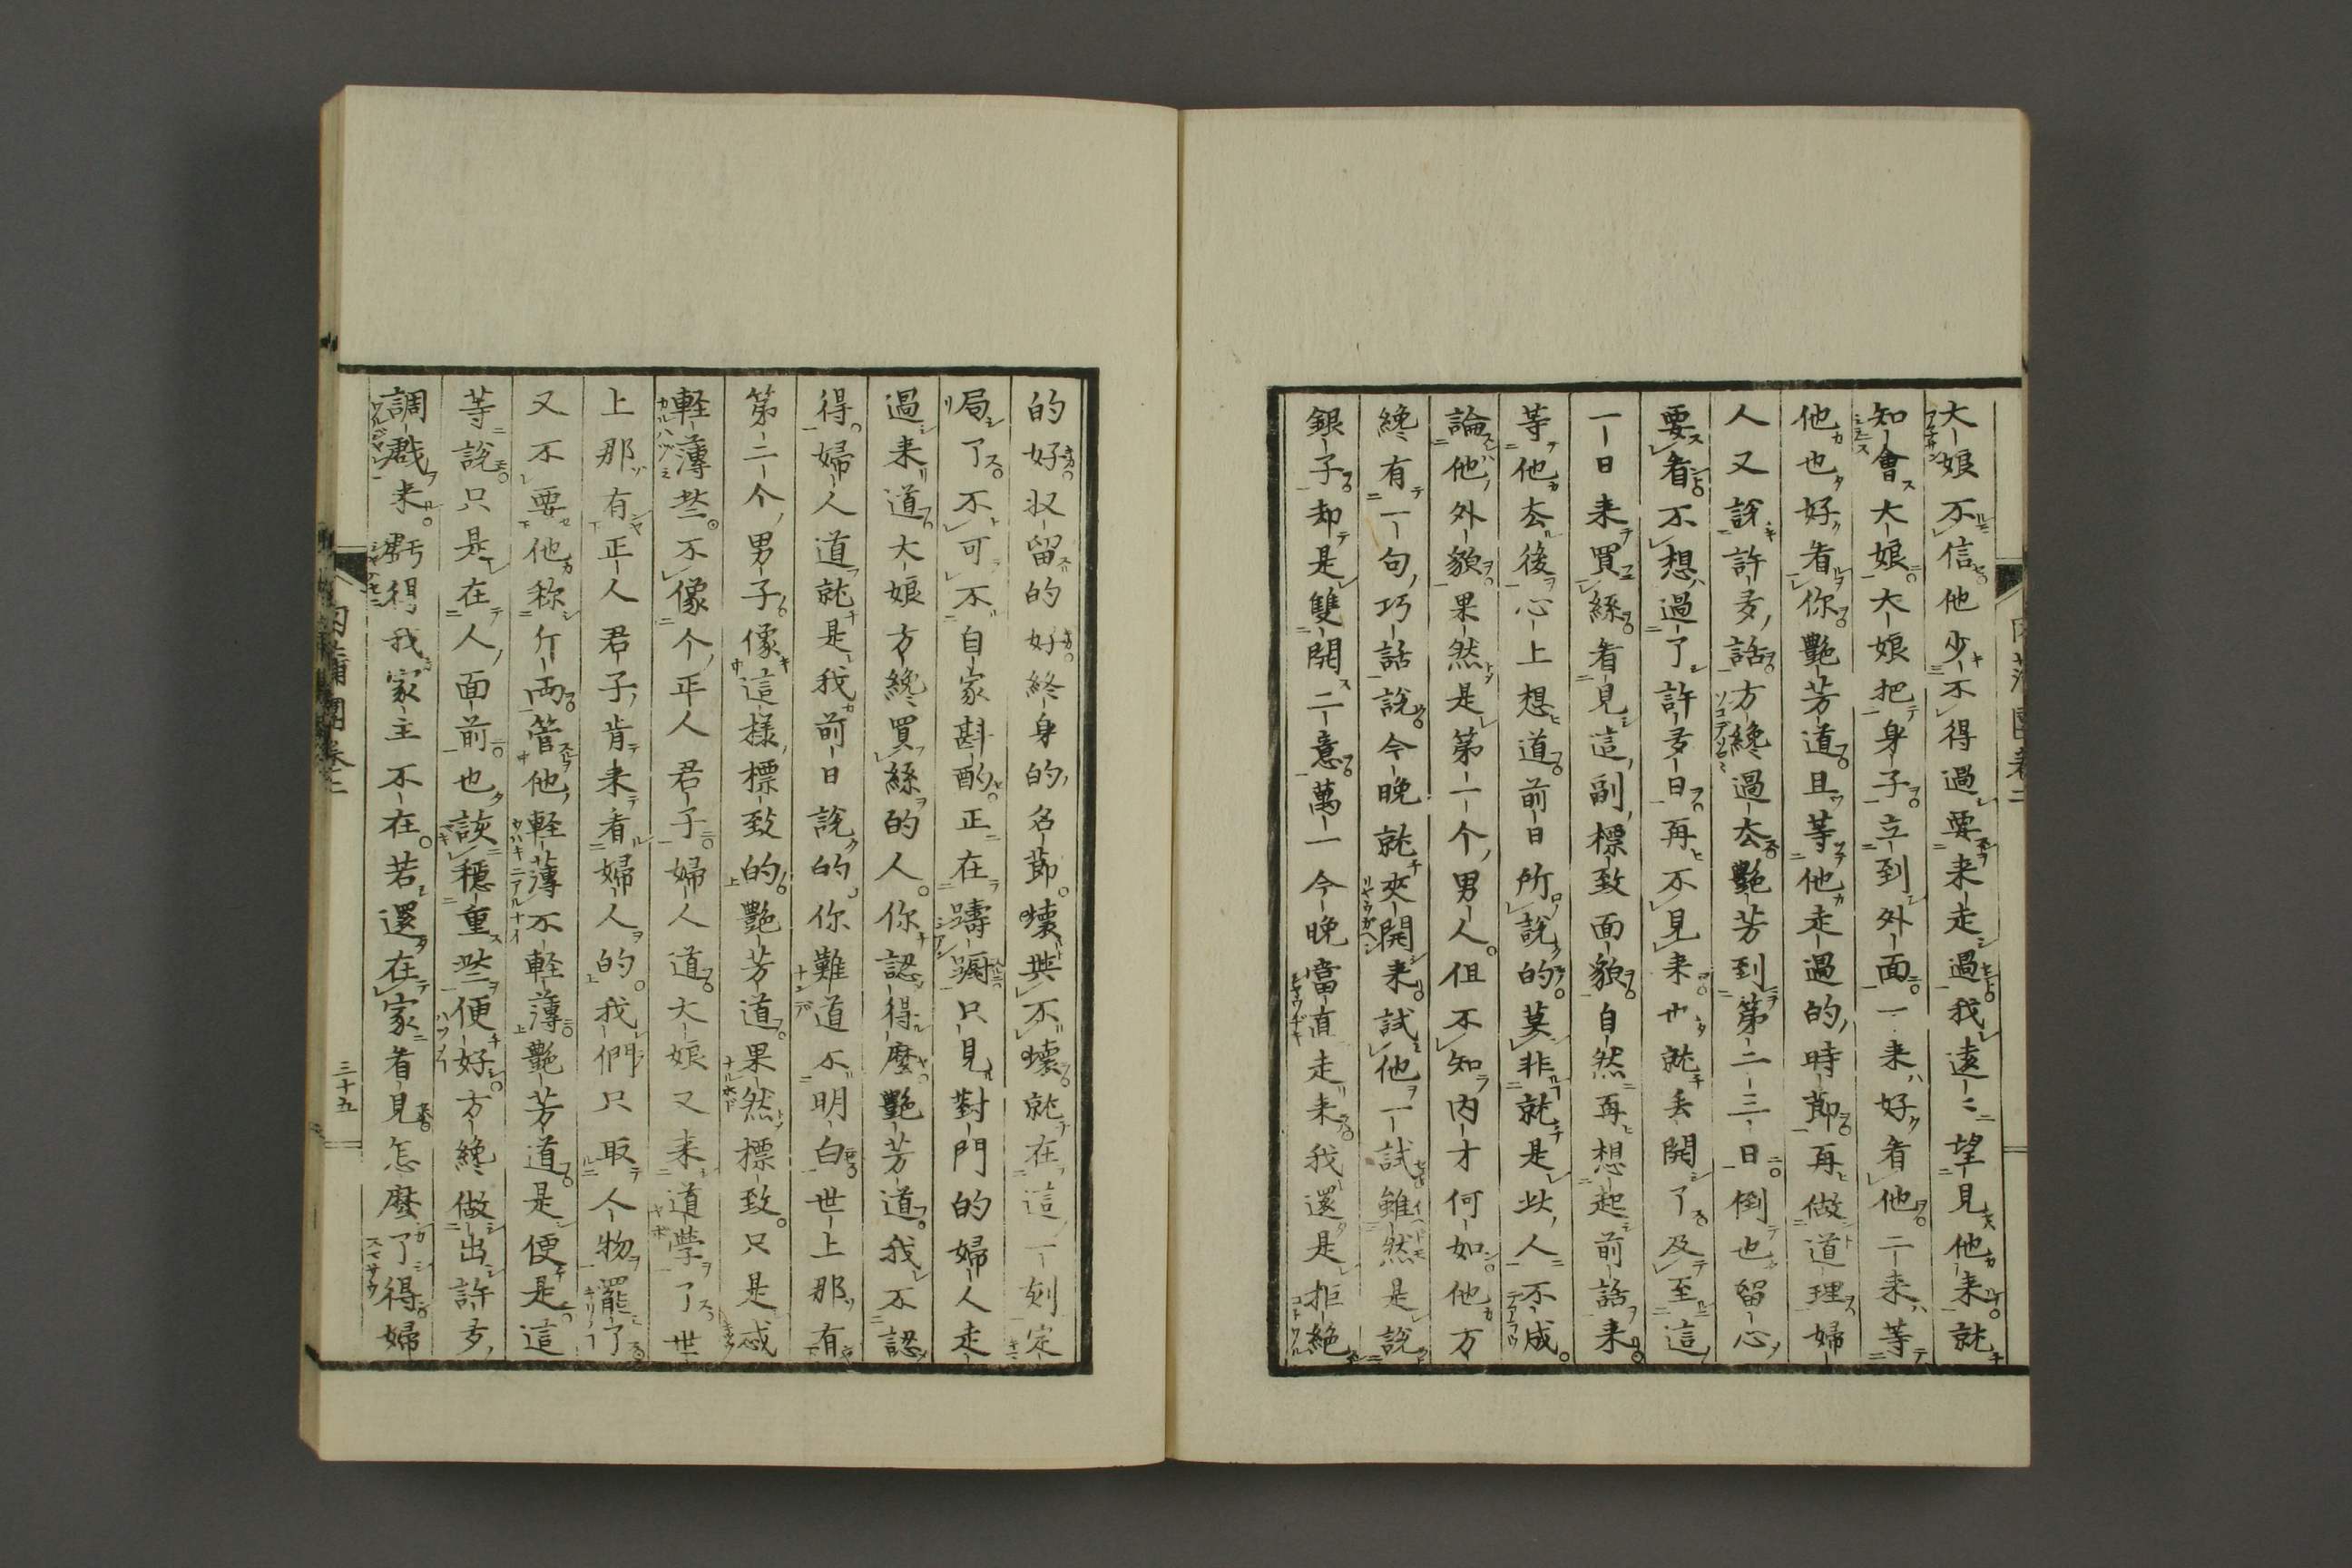 大娘不信他少不得過要来走過我遠〻望見他来就
知會大娘大娘把身子立到外面一来好看他二来等
他也好看你艷芳道且等他走過的時節再做道理婦
人又說許多話方纔過去艷芳到第二三日倒也留心
要看不想過了許多日再不見来也就丢開了及至這
一日来買絲看見這副標致面貌自然再想起前話来
等他去後心上想道前日所說的莫非就是此人不成
論他外貌果然是第一个男人但不知内才何如他方
纔有一句巧話說今晚就夾開来試他一試雖然是說
銀子却是雙関二意萬一今晚當直走来我還是拒絶
的好収留的好終身的名莭壊與不壊就在這一刻定
局了不可不自家斟酌正在躊躕只見對門的婦人走
過来道大娘方纔買絲的人你認得麼艷芳道我不認
得婦人道就是我前日說的你難道不明白世上那有
第二个男子像這樣標致的艷芳道果然標致只是忒
軽薄些不像个正人君子婦人道大娘又来道學了世
上那有正人君子肯来看婦人的我們只取人物罷了
又不要他称斤両管他軽薄不軽薄艷芳道是便是這
等說只是在人面前也該穩重些便好方纔做出許多
調戯来虧得我家主不在若還在家看見怎麼了得婦
肉蒲團卷二
三十五